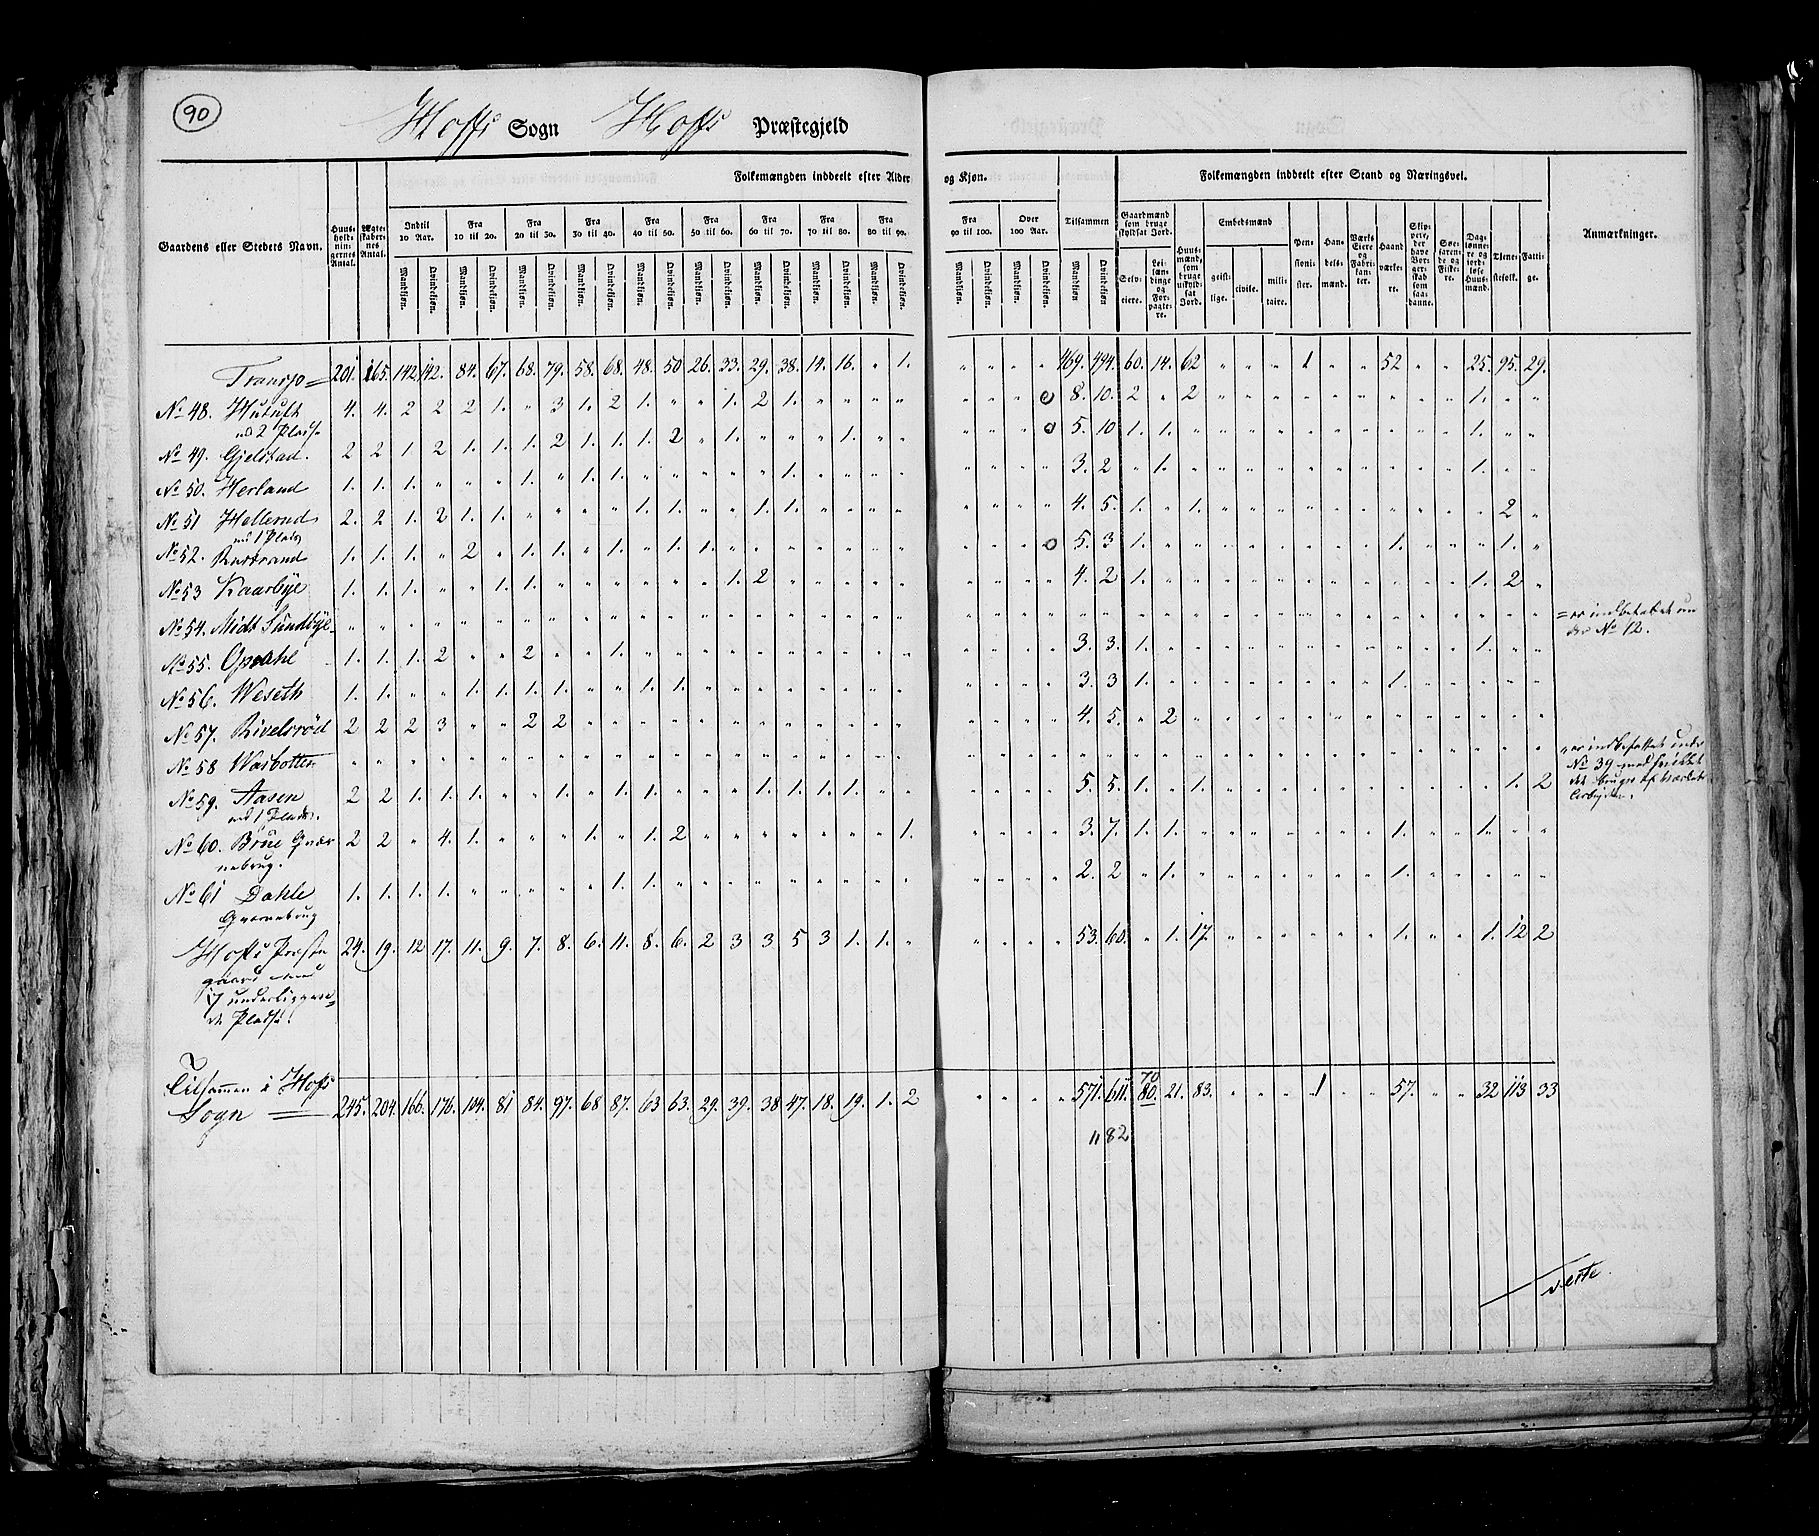 90
Hoffs Sogn Hoffs Præstegjeld
Folkemængden inddeelt efter Alder og Kjøn. Folkemængden inddeelt efter Stand og Næringsvei.
Gaardens eller Stedets Navn. Huusholdningernes Antal. Ægteskabernes Antal. Indtil 10 Aar. Fra 10 til 20. Fra 20 til 30. Fra 30 til 40. Fra 40 til 50. Fra 50 til 60. Fra 60 til 70. Fra 70 til 80. Fra 80 til 90. Fra 90 til 100. Over 100 Aar. Tilsammen Gaardmænd som bruge skyldsat Jord. Huusmænd, som bruge uskyldsat Jord. Embedsmænd Pensionister. Handelsmænd. Værks Eiere og Fabrikanter. Haandværkere. Skippere, der have Borgerskab som saadanne. Søefarende og Fiskere. Dagslønnere og jordløse Huusmænd. Tjenestefolk. Fattige. Anmærkninger.
Mandkjøn. Qvindekjøn. Mandkjøn. Qvindekjøn. Mandkjøn. Qvindekjøn. Mandkjøn. Qvindekjøn. Mandkjøn. Qvindekjøn. Mandkjøn. Qvindekjøn. Mandkjøn. Qvindekjøn. Mandkjøn. Qvindekjøn. Mandkjøn. Qvindekjøn. Mandkjøn. Qvindekjøn. Mandkjøn. Qvindekjøn. Mandkjøn. Qvindekjøn Selveiere. Leilændinge og Forpagtere. geistlige. civile. militaire.
Transp = 201. 165. 142. 142. 84. 67. 68. 79. 58. 68. 48. 50 26. 33. 29. 38. 14. 16. " 1. " " " " 469. 494. 60. 14. 62 " " " 1 " " 52 " " 25. 95. 29.
No 48. Hutuft 4. 4. 2 2 2 1. " 3 1. 2 1. " " 1. 2 1. " " " " " " " 8. 10. 2 " 2 " " " " " " " " " 1. " "
md 2 Pladse
No 49. Gjelstad. 2 2 1. 2 1. 1. 1. 2 1. 1. 1. 2 " 1. " " " 1. " " " " " 5. 10 1. 1. " " " " " " " " " " 1. " "
No 50. Herland 1. 1. 1. " " " 1. " 1. 1. " " " " " 1. " " " " " " " " 3. 2 " 1. " " " " " " " " " " 1. " "
No 51 Hellerud 2. 2 1. 2 1. 1. " " " " 1. 1. " " 1. 1. " " " " " " " " 4. 5. 1. " 1. " " " " " " " " " " 2 "
md 1 Plads
No 52. 1. 1. 1. " 2 " 1. 1. " 1. " 1. 1. " " " " " " " " " " 5. 3 1. " " " " " " " " 1. " " " 1. "
No 53 Kaarbye 1. 1. 1. " " 1. 1. " " " " " " 1. 2 " " " " " " " " " 4. 2 1. " " " " " " " " " " " 1. 2 "
No 54. Midt Sundbye " " " " " " " " " " " " " " " " " " " " " " " " " " " " " " " " " " " " " " " " "
= er indbefattet un
der No 12.
No 55. Opdahl 1. 1. 1. 2 " " 2 " " 1. " " " " " " " " " " " " " " 3. 3. 1. " " " " " " " " " " " 1. " "
No 56. Weseth 1. 1. " " 1. 1. 1. 1. " " 1. 1. " " " " " " " " " " " " 3. 3 1. " " " " " " " " 1. " " " " "
No 57. Rivelsröd 2 2 2 3 " " 2 2 " " " " " " " " " " " " " " " " 4. 5. " 2 " " " " " " " " " " " " "
No 58 Wasbotten " " " " " " " " " " " " " " " " " " " " " " " " " " " " " " " " " " " " " " " " "
" er indbefattet under
No 39
No 59. Aasen 2 2 1. 1. 1. " " 1. " 1. 1. " " 1. 1. 1. 1. " " " " " " " 5. 5. 1. " 1. " " " " " " " " " " 1. 2
md 1 Plads.
No 60. Brue Qvær 2 2 " 4. 1. " " " 1. " 1. 2 " " " " " " " 1. " " " " 3. 7. 1. 1. " " " " " " " 1. " " 1. " "
nebrug.
No 61 Dahle 1. 1. 1. 1. " " " " " 1. 1. " " " " " " " " " " " " " 2. 2 " 1. " " " " " " " 1. " " " " "
Qvernebrug
Hoffs Præste 24. 19. 12 17. 11. 9. 7. 8. 6. 11. 8. 6. 2 3 3 5 3 1. 1. " " " " " 53. 60. " 1. 17. " " " " " " 1. " " 1. 12 2
gaard med
17 underliggen=
de Pladse.
Tilsammen i Hofs
Sogn = 245. 204. 166. 176. 104. 81 84. 97. 68 87. 63 63. 29. 39. 38 47. 18. 19. 1. 2 " " " " 571. 611. 80. 21. 83. " " " 1 " " 57. " " 32 113 33
70
1182
verte.